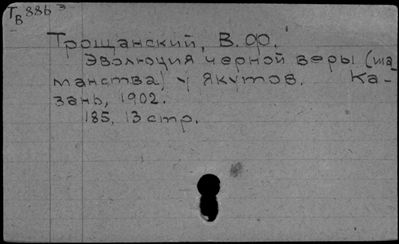 Тв 886 э
Трощанский, В.Ф.
Эволюция черной веры (ша-
манства) у якутов. Ка-
зань, 1902.
185, 13 стр.